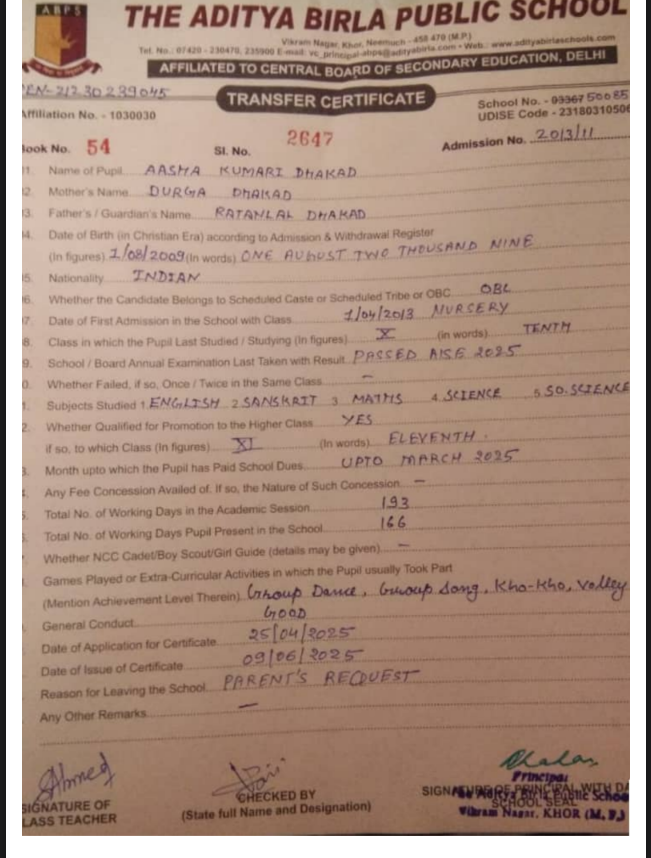 ABPS
THE ADITYA BIRLA PUBLIC SCHOOL
Vikram Nagar, Khor, Neemuch - 458 470 (M.P.)
Tel. No.: 07420 - 230470, 235900 E-mail: vc_principal-abps@adityabirla.com • Web.: www.adityabirlaschools.com
AFFILIATED TO CENTRAL BOARD OF SECONDARY EDUCATION, DELHI
EN-21230239045
TRANSFER CERTIFICATE
School No. - 03367 50085
Affiliation No. - 1030030
UDISE Code - 2318031050
Book No. 54 Sl. No. 2647 Admission No. 2013/11
1. Name of Pupil AASHA KUMARI DHAKAD
2. Mother's Name DURGA DHAKAD
3. Father's / Guardian's Name RATANLAL DHAKAD
4. Date of Birth (in Christian Era) according to Admission & Withdrawal Register
(In figures) 1/08/2009 (In words) ONE AUGUST TWO THOUSAND NINE
5. Nationality INDIAN
6. Whether the Candidate Belongs to Scheduled Caste or Scheduled Tribe or OBC OBC
7. Date of First Admission in the School with Class 1/04/2013 NURSERY
8. Class in which the Pupil Last Studied / Studying (In figures) X (in words) TENTH
9. School / Board Annual Examination Last Taken with Result PASSED AISE 2025
0. Whether Failed, if so, Once / Twice in the Same Class —
1. Subjects Studied 1 ENGLISH 2 SANSKRIT 3 MATHS 4 SCIENCE 5 SO.SCIENCE
2. Whether Qualified for Promotion to the Higher Class YES
if so, to which Class (In figures) XI (In words) ELEVENTH
3. Month upto which the Pupil has Paid School Dues UPTO MARCH 2025
Any Fee Concession Availed of. If so, the Nature of Such Concession —
Total No. of Working Days in the Academic Session 193
Total No. of Working Days Pupil Present in the School 166
Whether NCC Cadet/Boy Scout/Girl Guide (details may be given) —
Games Played or Extra-Curricular Activities in which the Pupil usually Took Part
(Mention Achievement Level Therein) Group Dance, Group Song, Kho-Kho, Valley
General Conduct GOOD
Date of Application for Certificate 25/04/2025
Date of Issue of Certificate 09/06/2025
Reason for Leaving the School PARENT'S REQUEST
Any Other Remarks —
Ahmed
SIGNATURE OF
CLASS TEACHER
CHECKED BY
(State full Name and Designation)
SIGNATURE OF PRINCIPAL WITH DA
SCHOOL SEAL
Principal
Aditya Birla Public School
Vikram Nagar, KHOR (M. P.)